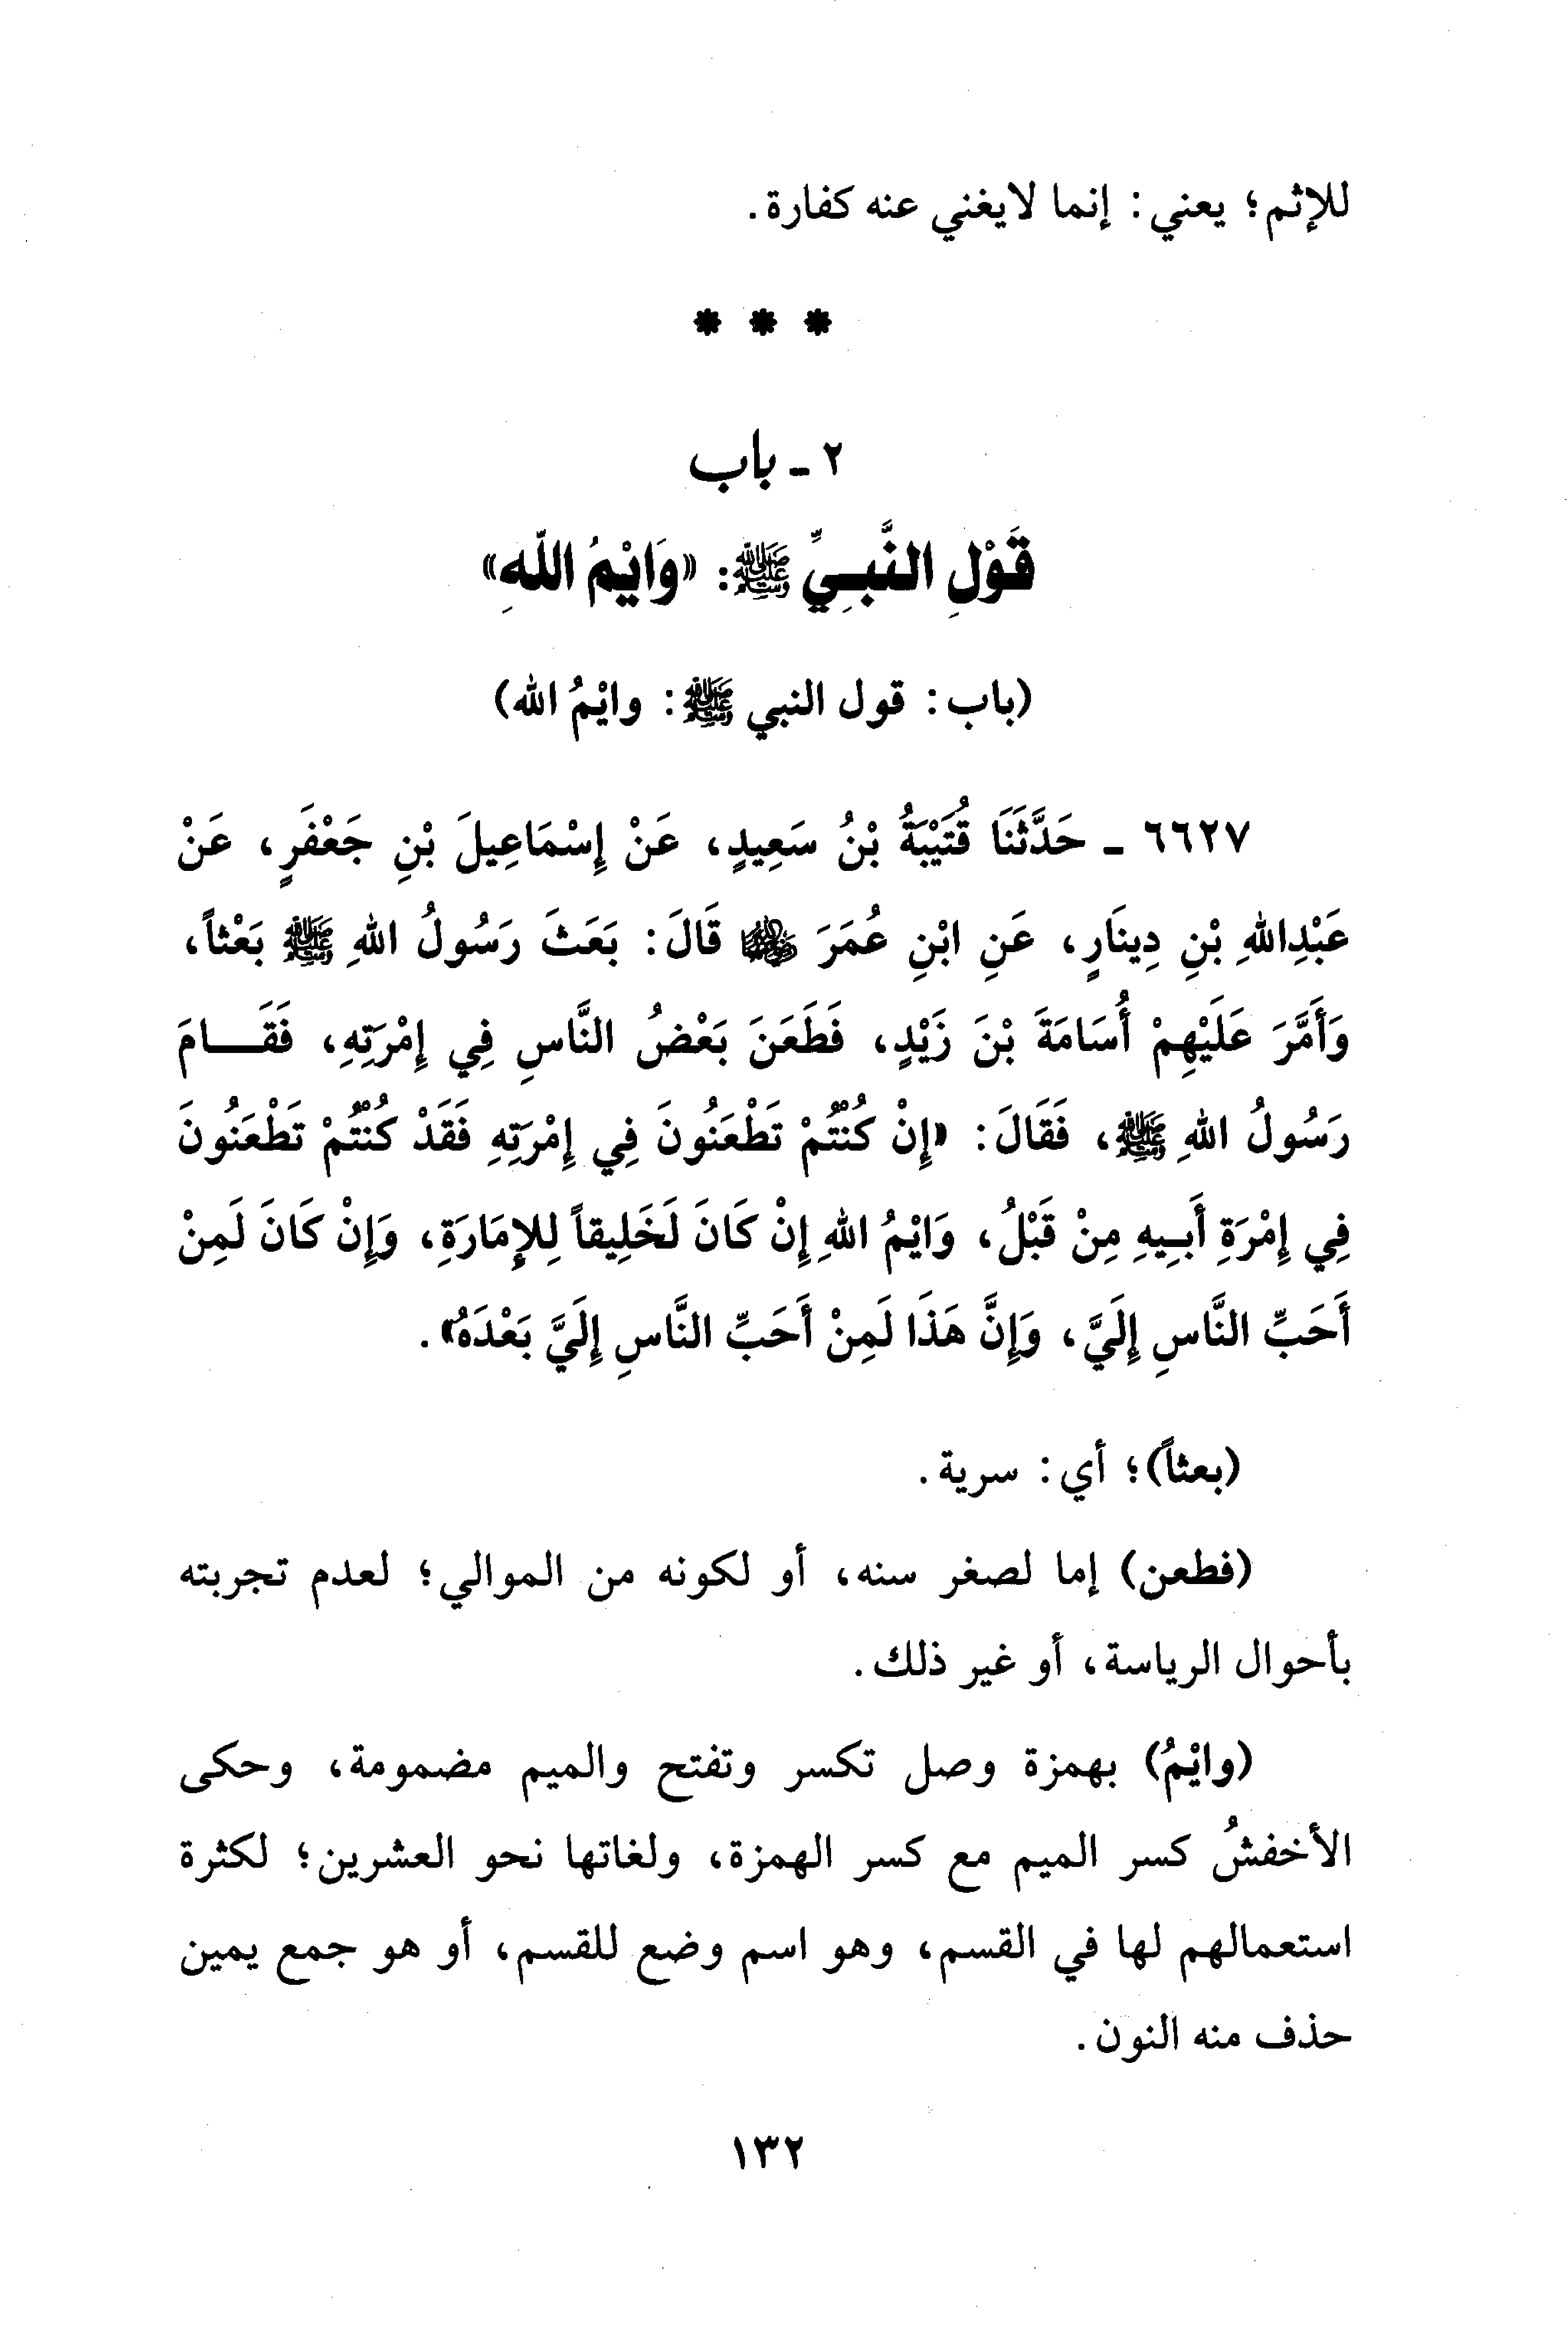 للإثم؛ يعني: إنما لايغني عنه كفارة.
* * *
٢ - باب
قَوْلِ النَّبِيِّ ﷺ: «وَايْمُ اللَّهِ»
(باب: قول النبي ﷺ: وايْمُ الله)
٦٦٢٧ - حَدَّثَنَا قُتَيْبَةُ بْنُ سَعِيدٍ، عَنْ إِسْمَاعِيلَ بْنِ جَعْفَرٍ، عَنْ
عَبْدِاللهِ بْنِ دِينَارٍ، عَنِ ابْنِ عُمَرَ رضي الله عنهما قَالَ: بَعَثَ رَسُولُ اللهِ ﷺ بَعْثاً،
وَأَمَّرَ عَلَيْهِمْ أُسَامَةَ بْنَ زَيْدٍ، فَطَعَنَ بَعْضُ النَّاسِ فِي إِمْرَتِهِ، فَقَـــامَ
رَسُولُ اللهِ ﷺ، فَقَالَ: «إِنْ كُنْتُمْ تَطْعَنُونَ فِي إِمْرَتِهِ فَقَدْ كُنْتُمْ تَطْعَنُونَ
فِي إِمْرَةِ أَبِيهِ مِنْ قَبْلُ، وَايْمُ اللهِ إِنْ كَانَ لَخَلِيقاً لِلإِمَارَةِ، وَإِنْ كَانَ لَمِنْ
أَحَبِّ النَّاسِ إِلَيَّ، وَإِنَّ هَذَا لَمِنْ أَحَبِّ النَّاسِ إِلَيَّ بَعْدَهُ».
(بعثاً)؛ أي: سرية.
(فطعن) إما لصغر سنه، أو لكونه من الموالي؛ لعدم تجربته
بأحوال الرياسة، أو غير ذلك.
(وايْمُ) بهمزة وصل تكسر وتفتح والميم مضمومة، وحكى
الأخفشُ كسر الميم مع كسر الهمزة، ولغاتها نحو العشرين؛ لكثرة
استعمالهم لها في القسم، وهو اسم وضع للقسم، أو هو جمع يمين
حذف منه النون.
١٣٢